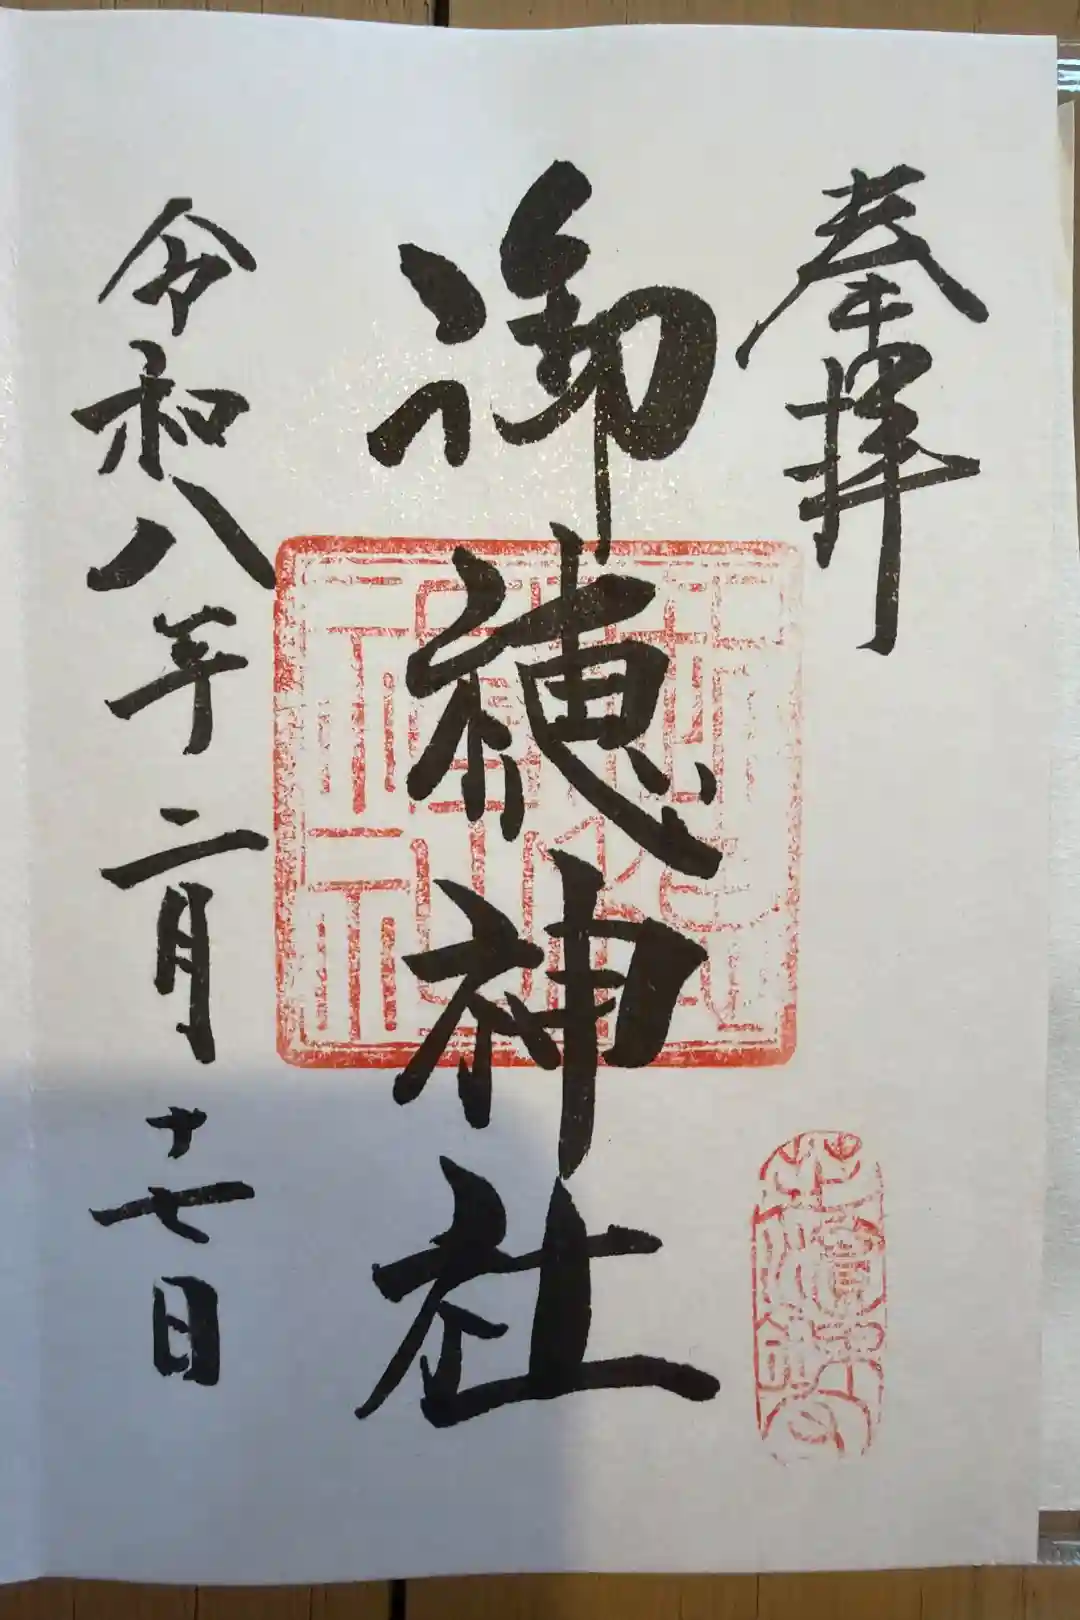 奉拝
御穂神社
令和八年二月十七日